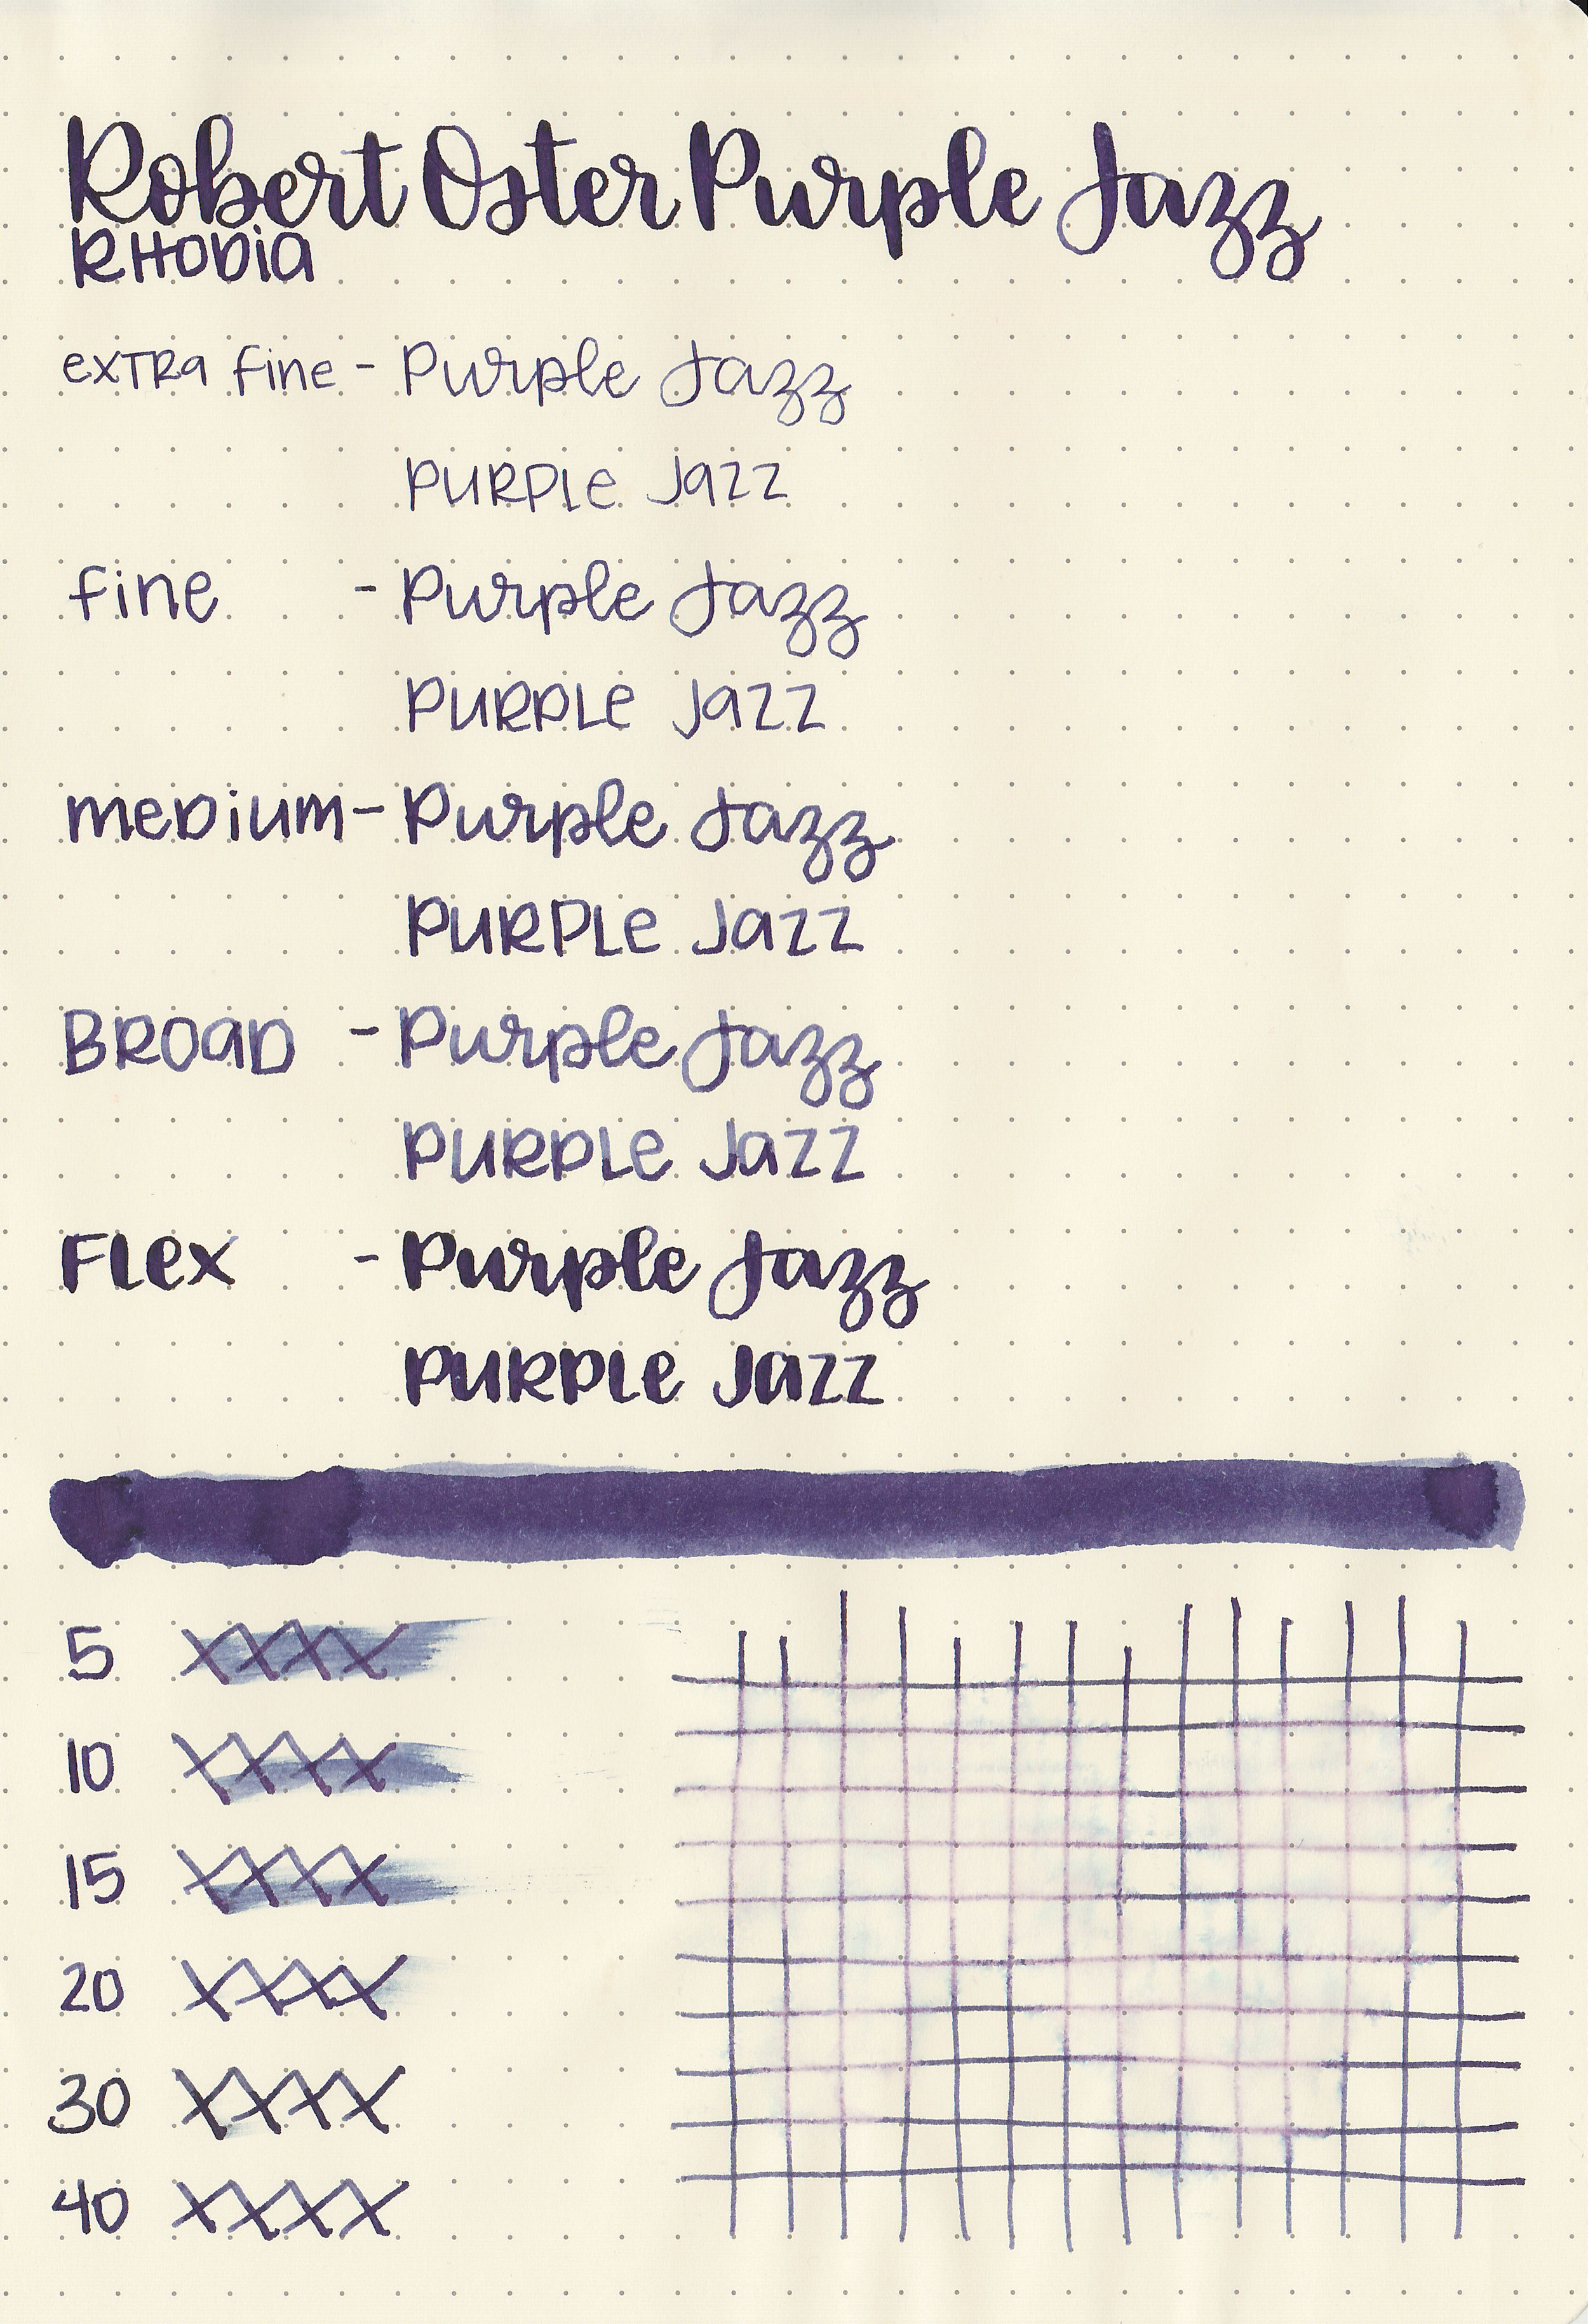 Robert Oster Purple Jazz
RHODia
exTRa fine - Purple Jazz
PURPLe Jazz
fine - Purple Jazz
PURPLe Jazz
meDium - Purple Jazz
PURPLe Jazz
BROaD - Purple Jazz
PURPLe Jazz
FLex - Purple Jazz
PURPLe Jazz
5 XXXX
10 XXXX
15 XXXX
20 XXXX
30 XXXX
40 XXXX